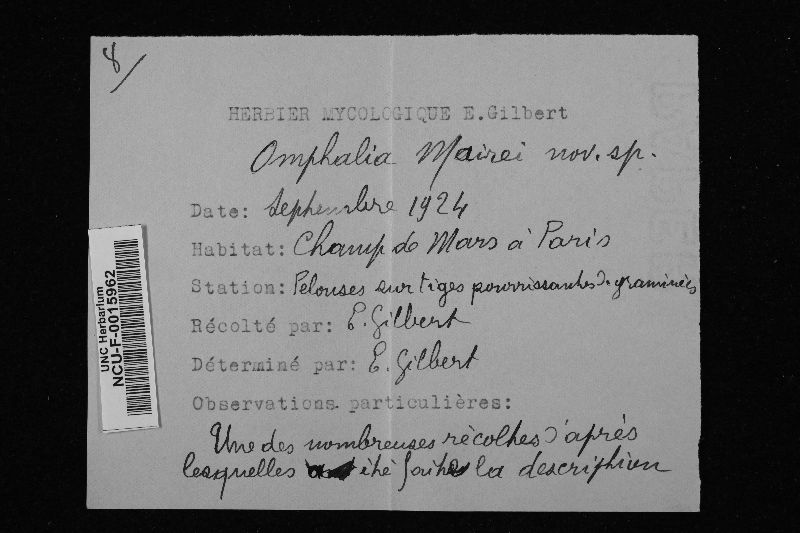 8/
HERBIER MYCOLOGIQUE E.Gilbert
Omphalia Mairei nov. sp.
Date: Septembre 1924
Habitat: Champ de Mars à Paris
Station: Pelouses sur tiges pourrissantes de graminées
Récolté par: E. Gilbert
Déterminé par: E. Gilbert
Observations particulières:
Une des nombreuses récoltes d'après
lesquelles a été faite la description
UNC Herbarium
NCU-F-0015962